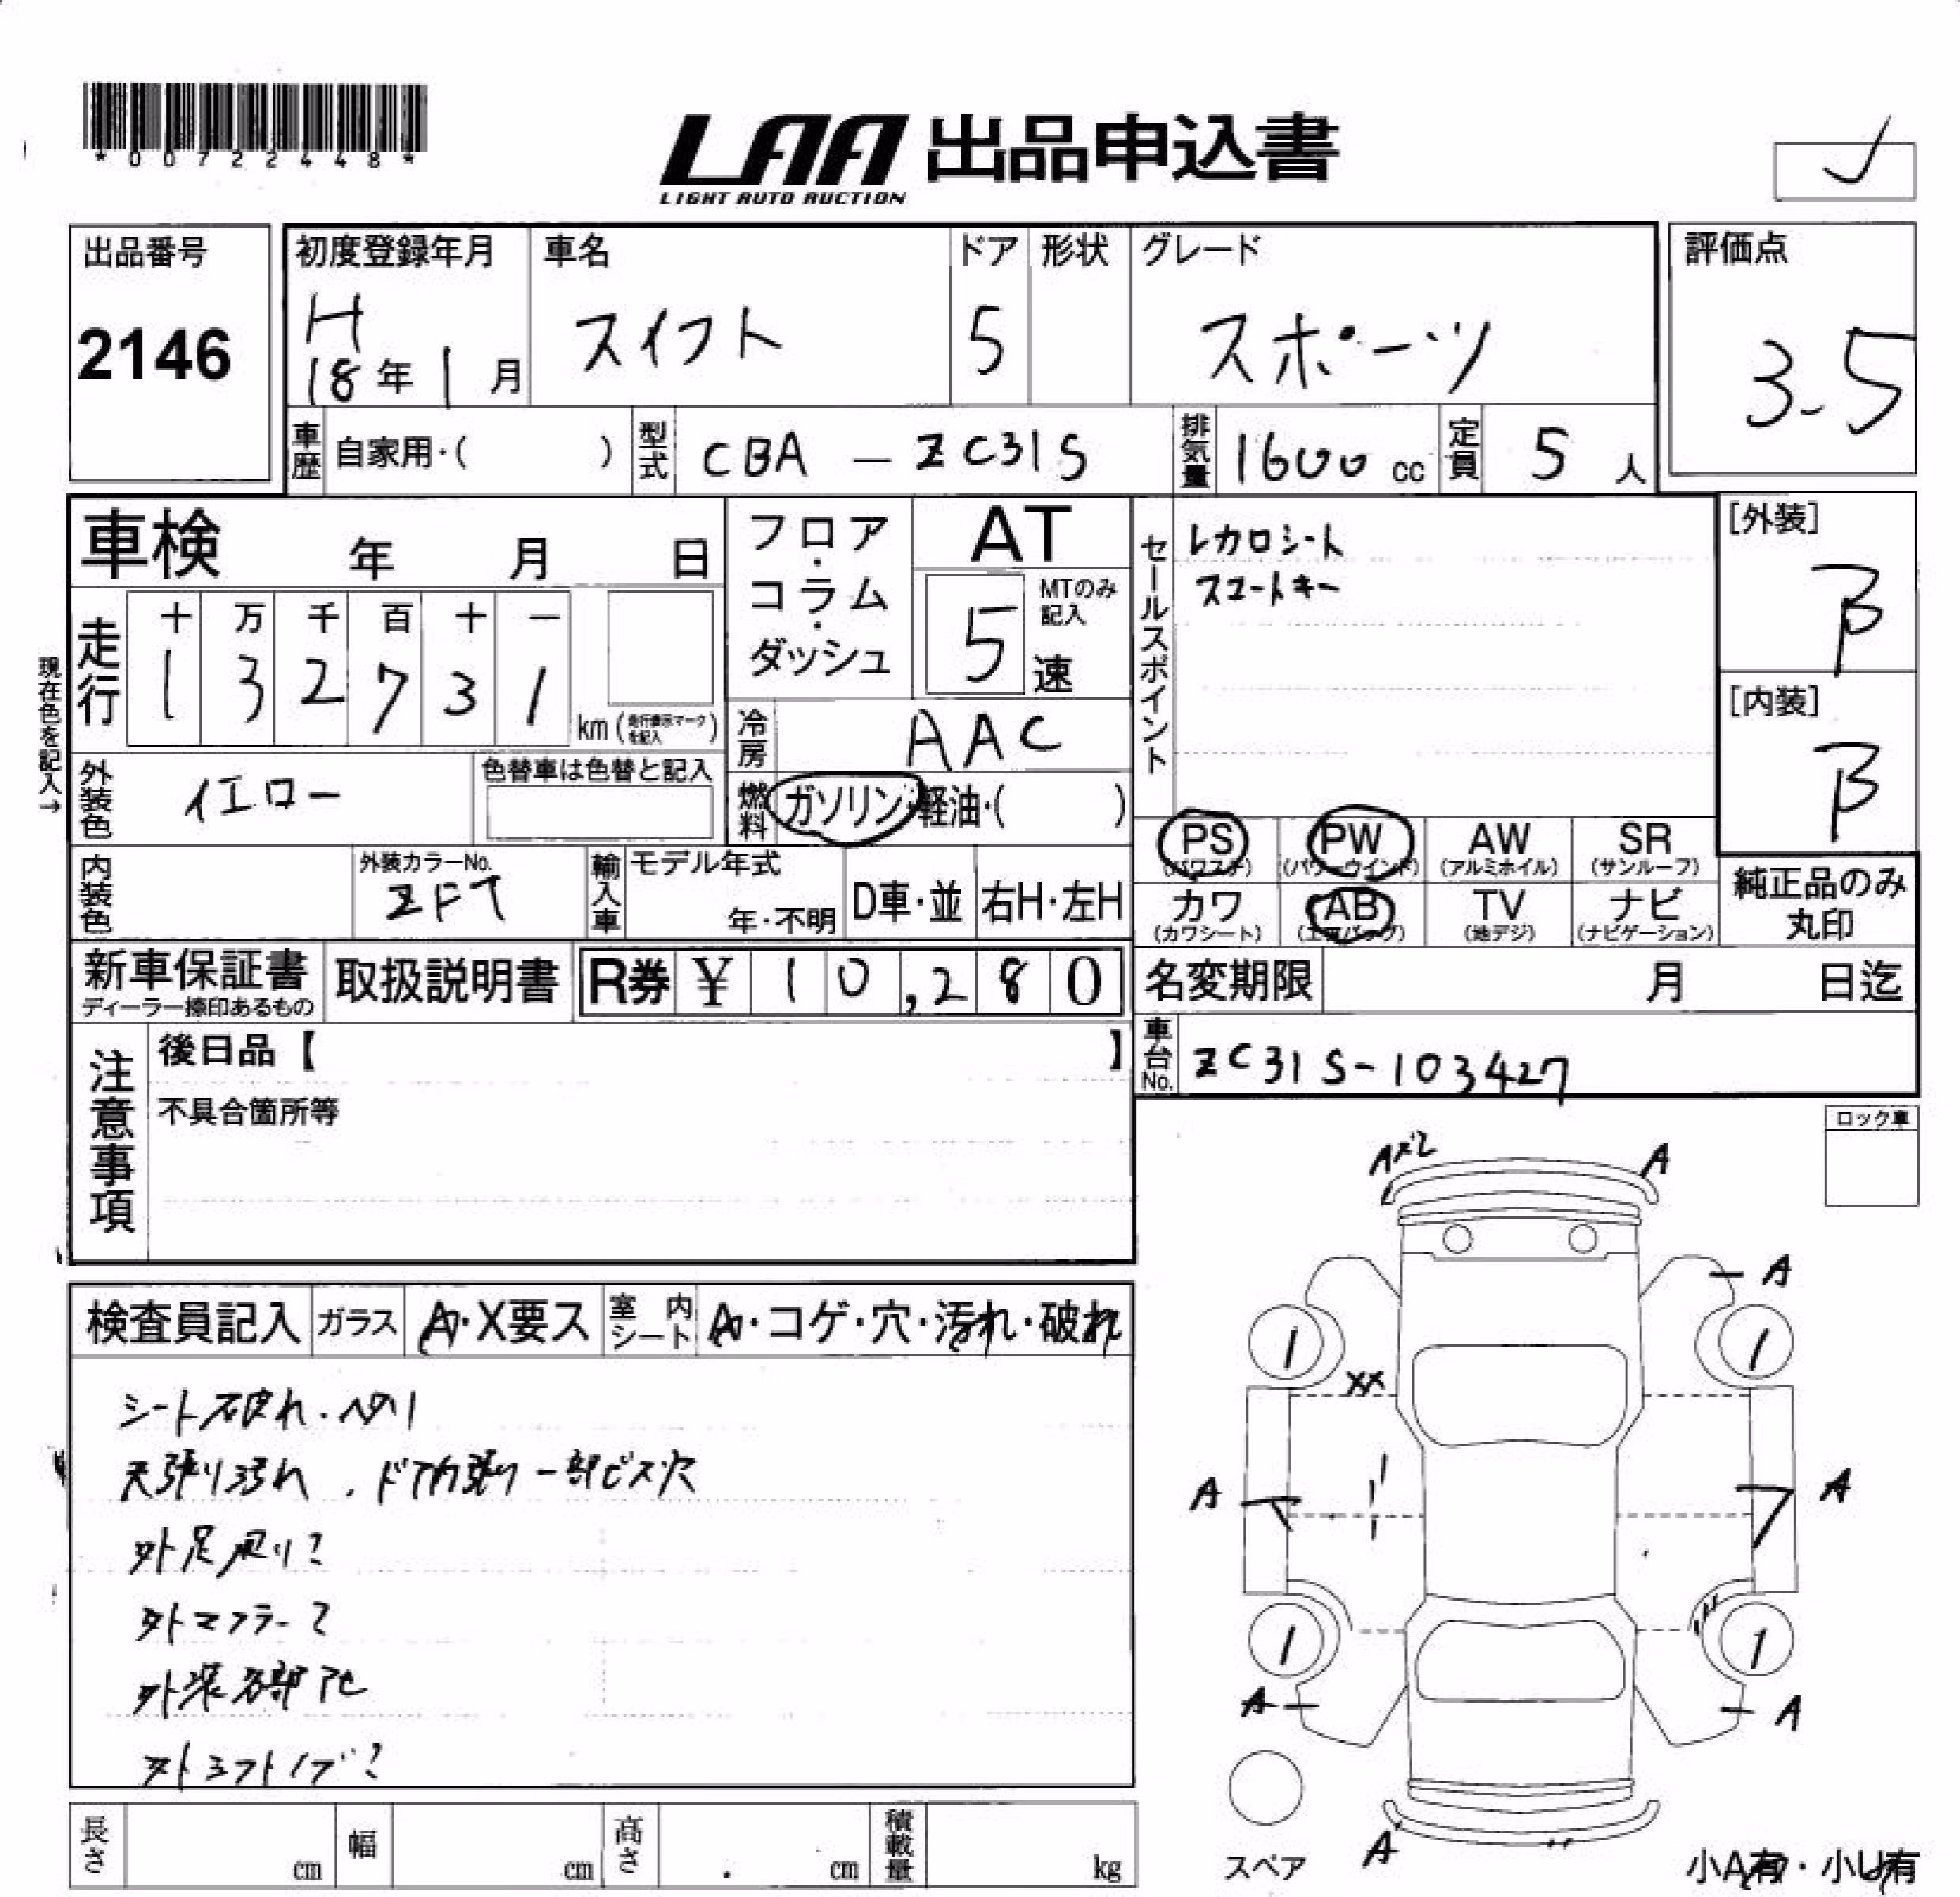 *00722448*
LAA 出品申込書
LIGHT AUTO AUCTION
出品番号
2146
初度登録年月
H
18年1月
車名
スイフト
ドア
5
形状
グレード
スポーツ
評価点
3.5
車歴 自家用・( )
型式 CBA - ZC31S
排気量 1600 cc
定員 5 人
車検 年 月 日
フロア・コラム・ダッシュ
AT
5 速
MTのみ記入
セールスポイント
レカロシート
スマートキー
[外装]
B
[内装]
B
現在色を記入→
走行
十 万 千 百 十 一
1 3 2 7 3 1
km (走行表示マークを記入)
冷房 AAC
外装色 イエロー
色替車は色替と記入
燃料 ガソリン・軽油・( )
PS (パワステ)
PW (パワーウインド)
AW (アルミホイル)
SR (サンルーフ)
カワ (カワシート)
AB (エアバッグ)
TV (地デジ)
ナビ (ナビゲーション)
純正品のみ
丸印
内装色
外装カラーNo.
ZFT
輸入車
モデル年式
年・不明
D車・並
右H・左H
新車保証書
ディーラー捺印あるもの
取扱説明書
R券 ¥ 10,280
名変期限 月 日迄
車台No. ZC31S-103427
注意事項
後日品【 】
不具合箇所等
ロック車
検査員記入
ガラス A・X要ス
室内シート A・コゲ・穴・汚れ・破れ
シート破れ・ヘタリ
天張り汚れ . ドア内張り一部ビス穴
外足廻り?
外マフラー?
外装各部アセ
外シフトノブ?
A×2
A
A
1
1
XX
A
A
1
1
A
A
A
スペア
小A有・小U有
長さ cm
幅 cm
高さ cm
積載量 kg